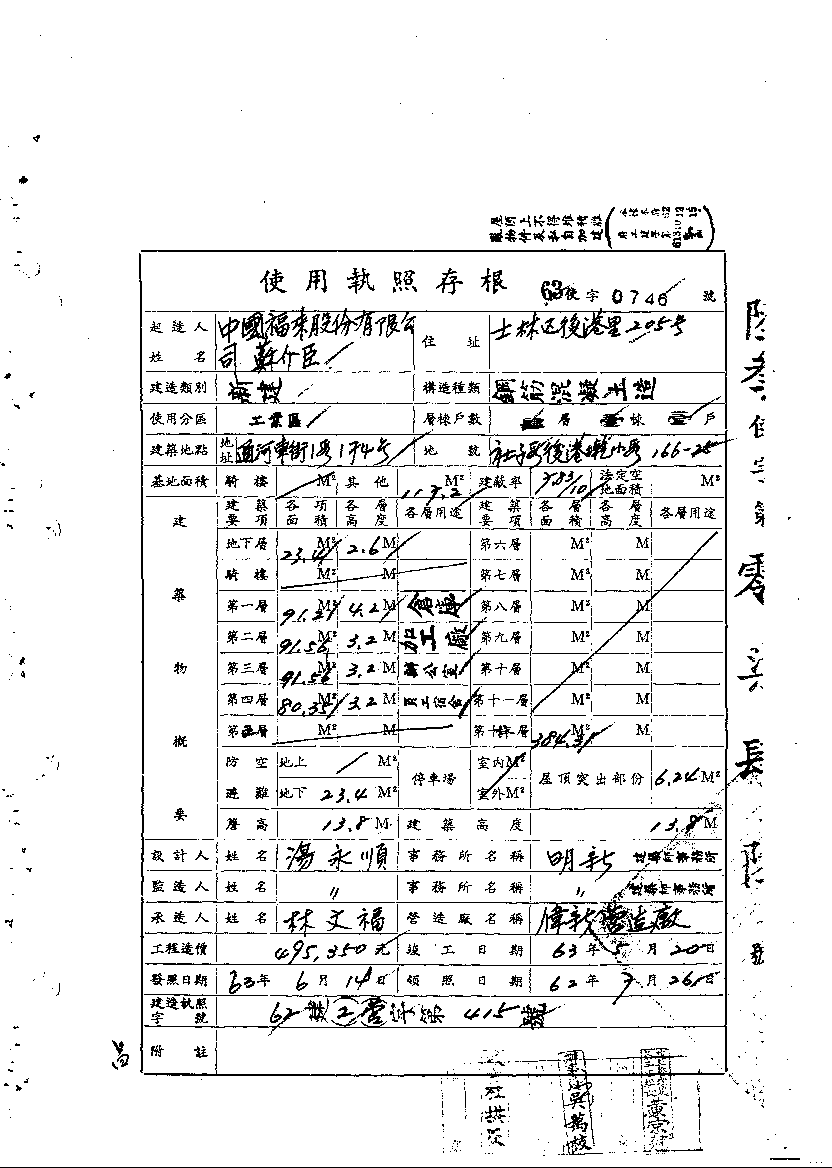 屋頂上不得堆積雜
廢物件及私自加建
使用執照存根 63使字0746號
起造人姓名 中國福來股份有限公司 蘇介臣 住址 士林區後港里205号
建造類別 新建 構造種類 鋼筋混凝土造
使用分區 工業區 層棟戶數 層 棟 戶
建築地點 地址 通河東街1段174号 地號 社子段後港墘小段166-25
基地面積 騎樓 M² 其他 117.2 M² 建蔽率 7.83/10 法定空地面積 M²
建築物概要
建築要項 各項面積 各層高度 各層用途 建築要項 各層面積 各層高度 各層用途
地下層 23.4 M² 2.6 M 第六層 M² M
騎樓 M² M 第七層 M² M
第一層 91.21 M² 4.2 M 倉庫 第八層 M² M
第二層 91.56 M² 3.2 M 加工廠 第九層 M² M
第三層 91.56 M² 3.2 M 辦公室 第十層 M² M
第四層 80.35 M² 3.2 M 員工宿舍 第十一層 M² M
第五層 M² M 第十層 384.31 M² M
防空避難 地上 M² 停車場 室內 M² 屋頂突出部份 6.24 M²
地下 23.4 M² 室外 M²
簷高 13.8 M 建築高度 13.8 M
設計人 姓名 湯永順 事務所名稱 明新 建築師事務所
監造人 姓名 〃 事務所名稱 〃 建築師事務所
承造人 姓名 林文福 營造廠名稱 偉新營造廠
工程造價 495,350元 竣工日期 63年5月20日
發照日期 63年6月14日 領照日期 62年7月26日
建造執照字號 62 營字第415號
附註
吳萬